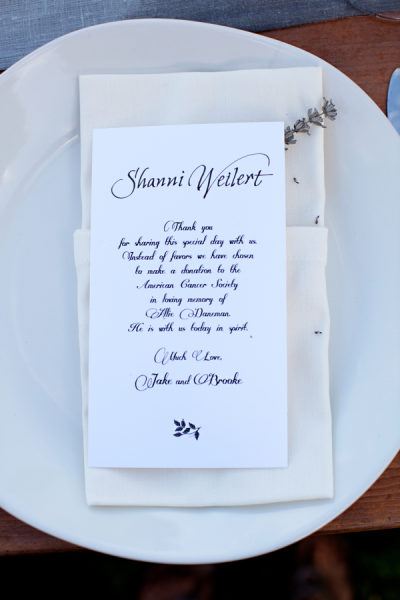 Shanni Weilert
Thank you
for sharing this special day with us.
Instead of favors we have chosen
to make a donation to the
American Cancer Society
in loving memory of
Allie Daneman.
He is with us today in spirit.
Much Love,
Jake and Brooke